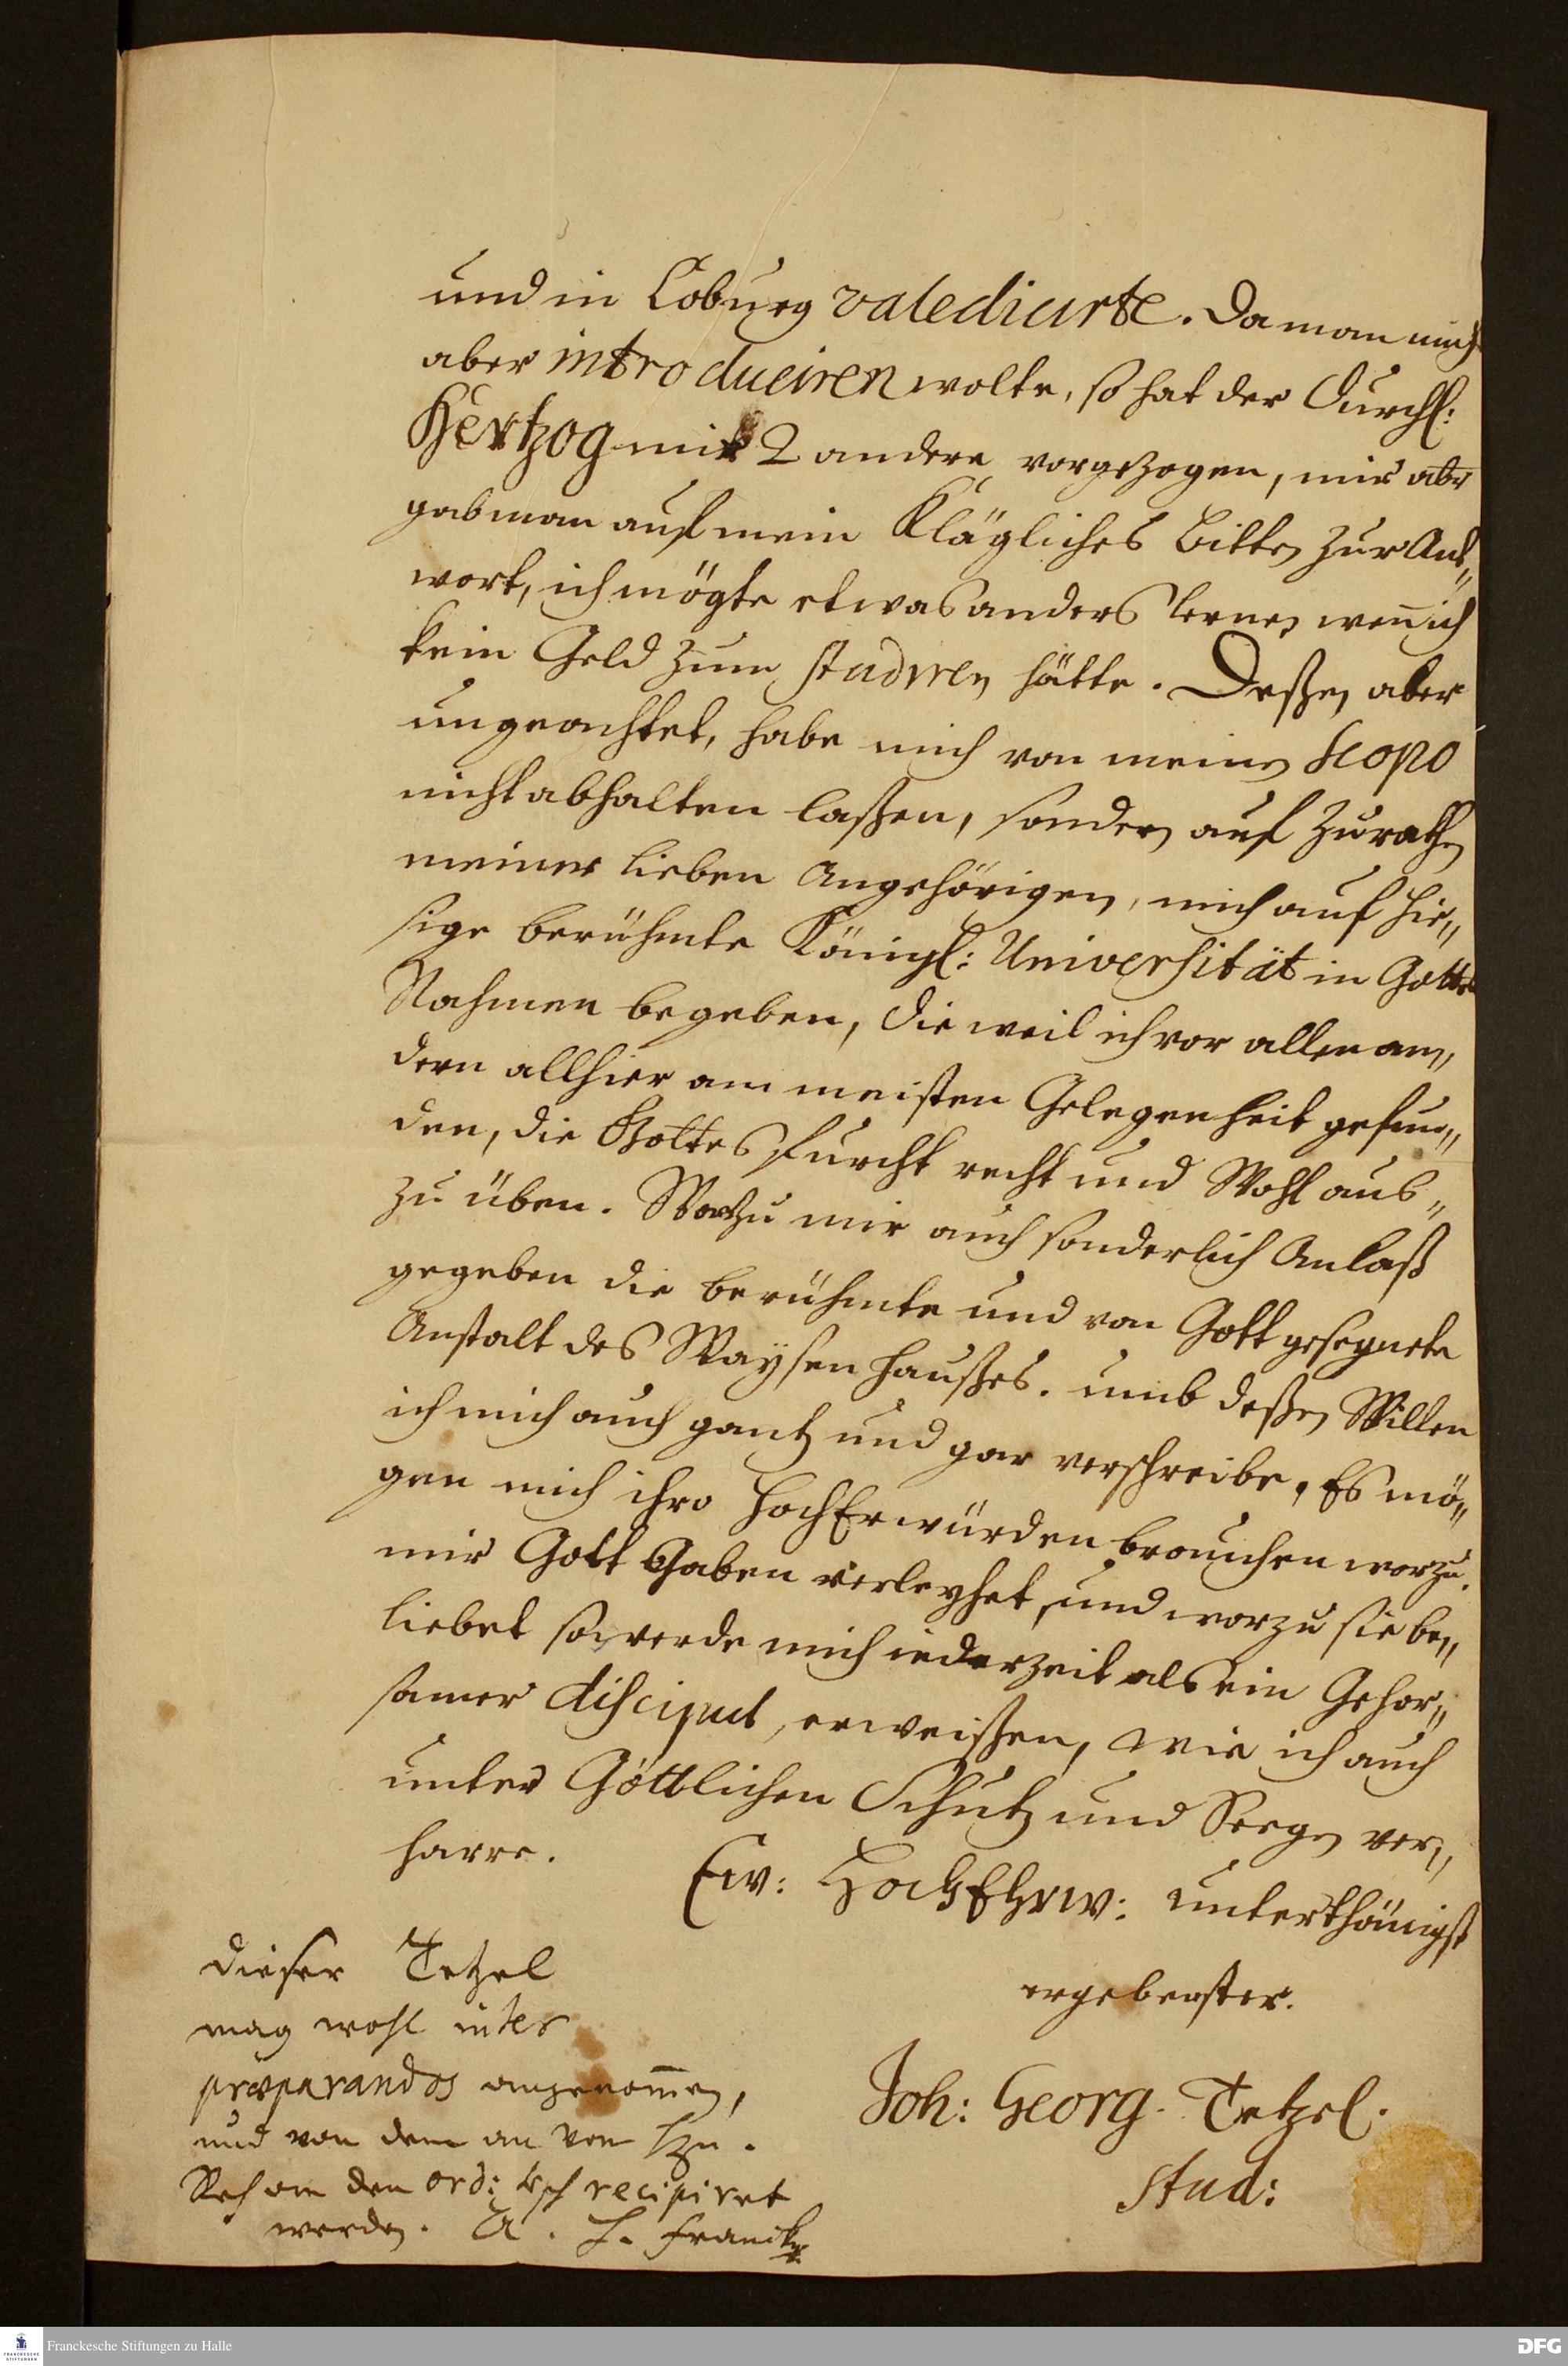 und in Coburg valedicirte. Da man mich
aber introduciren wolte, so hat der Durchl:
Hertzog mir 2 andere vorgezogen, mir aber
gab man auf mein Klägliches Bitten zur Ant„
wort, ich mögte etwas anders lernen wen̄ ich
kein Geld zum studiren hätte. Deßen aber
ungeachtet, habe mich von meinen scopo
nicht abhalten laßen, sondern auf Zurathen
meiner lieben Angehörigen, mich auf hie„
sige berühmte Königl: Universität in Gottes
Nahmen begeben, die weil ich vor allen an„
dern allhier am meisten Gelegenheit gefun„
den, die Gottesfurcht recht und Wohl aus„
zu üben. Worzu mir auch sonderlich Anlaß
gegeben die berühmte und von Gott gesegnete
Anstalt des Waysenhaußes. umb deßen Willen
ich mich auch gantz und gar verschreibe, Es mö„
gen mich ihro HochErwürden brauchen worzu
mir Gott Gaben verleyhet, und worzu sie be„
liebet so werde mich iederzeit als ein Gehor„
samer discipul, erweißen, wie ich auch
unter Göttlichen Schutz und Seegen ver„
harre.
Ew: HochEhrw: unterthänigst
ergebenster.
Joh: Georg. Tetzel.
stud:
dieser Tetzel
mag wohl inter
præparandos angenom̄en,
und von dem an von H.
an den ord: recipiret
werden. A. H. Francke
Franckesche Stiftungen zu Halle
FRANCKESCHE STIFTUNGEN
DFG